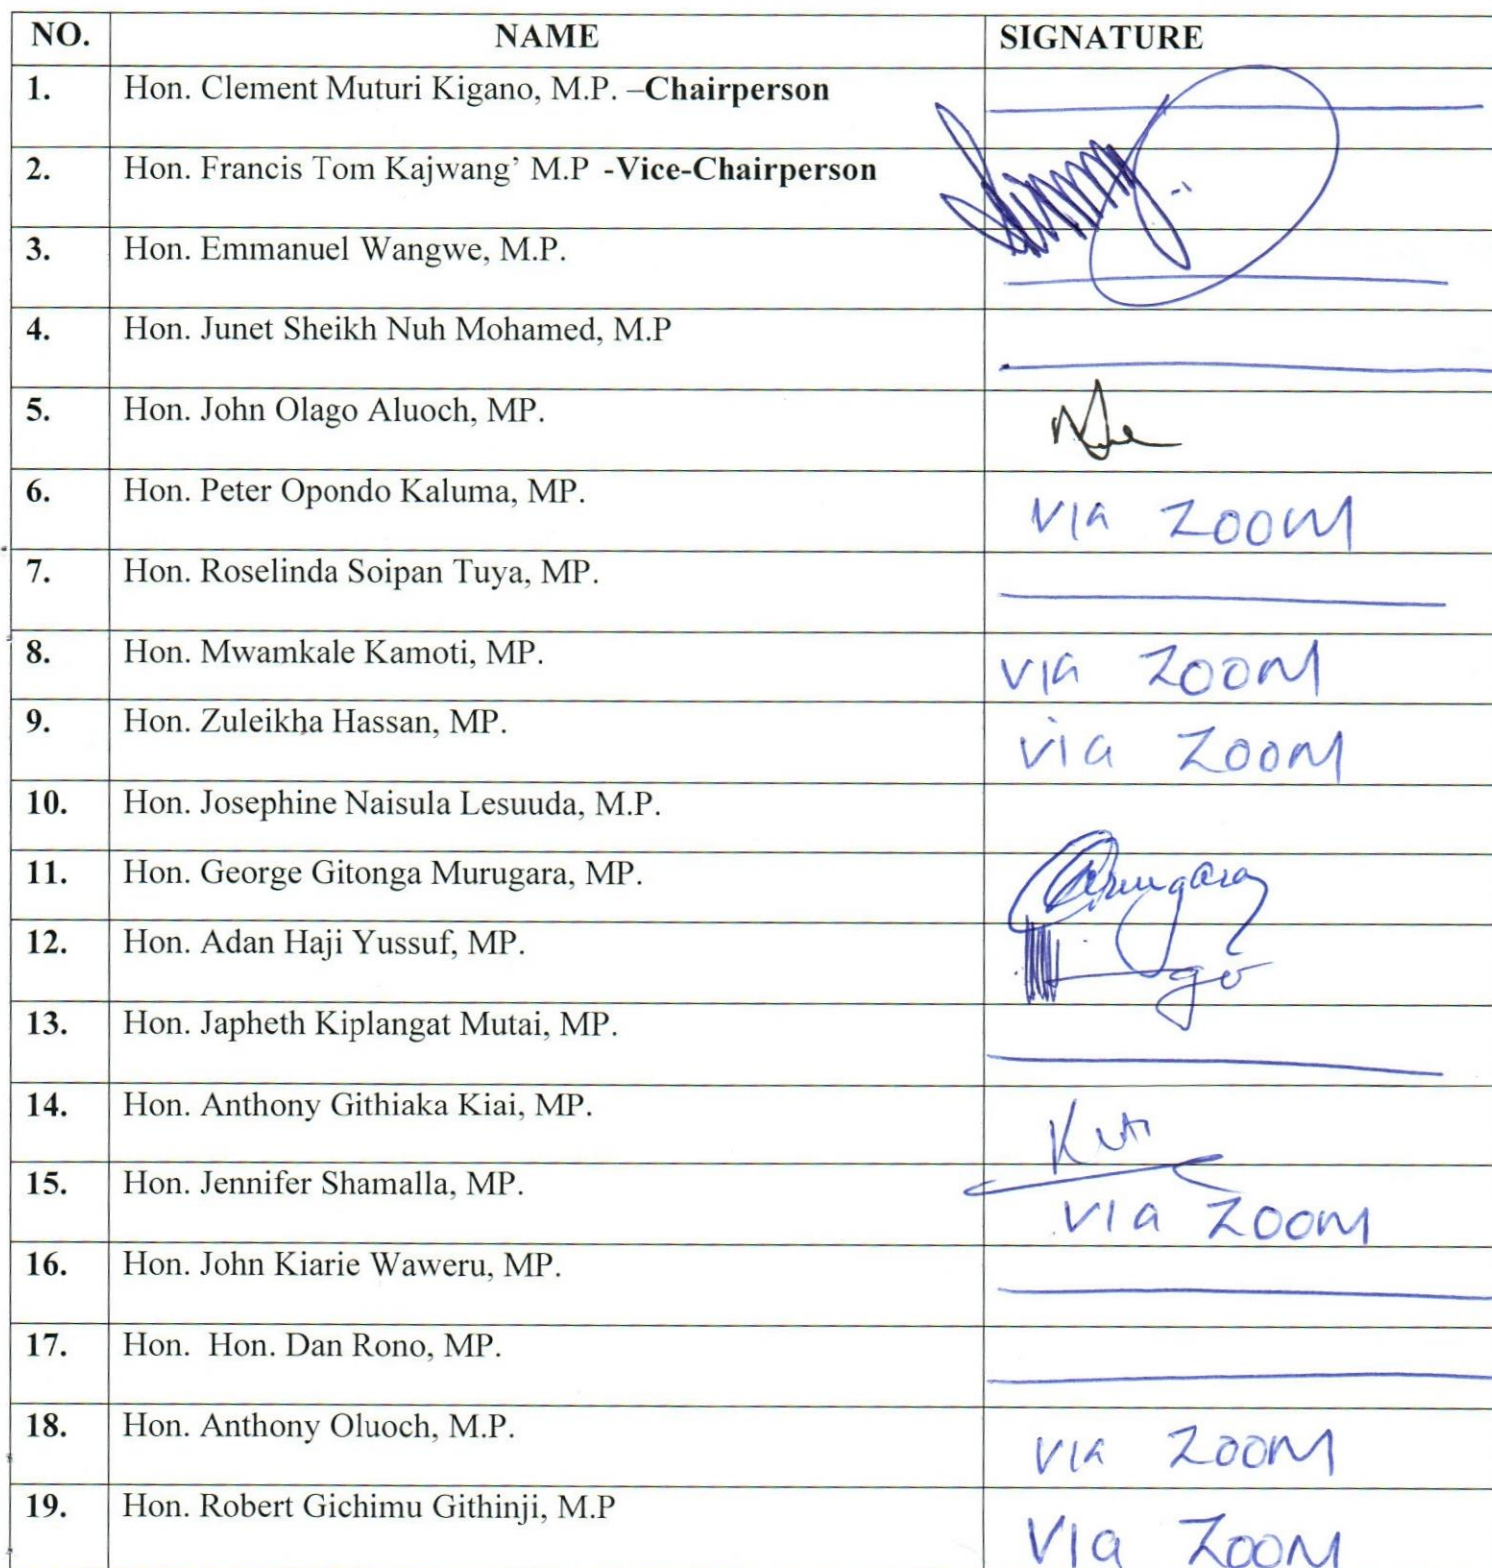 NO. NAME SIGNATURE
1. Hon. Clement Muturi Kigano, M.P. –Chairperson
2. Hon. Francis Tom Kajwang’ M.P -Vice-Chairperson
3. Hon. Emmanuel Wangwe, M.P.
4. Hon. Junet Sheikh Nuh Mohamed, M.P
5. Hon. John Olago Aluoch, MP.
6. Hon. Peter Opondo Kaluma, MP. VIA ZOOM
7. Hon. Roselinda Soipan Tuya, MP.
8. Hon. Mwamkale Kamoti, MP. VIA ZOOM
9. Hon. Zuleikha Hassan, MP. via ZOOM
10. Hon. Josephine Naisula Lesuuda, M.P.
11. Hon. George Gitonga Murugara, MP.
12. Hon. Adan Haji Yussuf, MP.
13. Hon. Japheth Kiplangat Mutai, MP.
14. Hon. Anthony Githiaka Kiai, MP.
15. Hon. Jennifer Shamalla, MP. VIa ZOOM
16. Hon. John Kiarie Waweru, MP.
17. Hon. Hon. Dan Rono, MP.
18. Hon. Anthony Oluoch, M.P. VIA ZOOM
19. Hon. Robert Gichimu Githinji, M.P VIa ZOOM